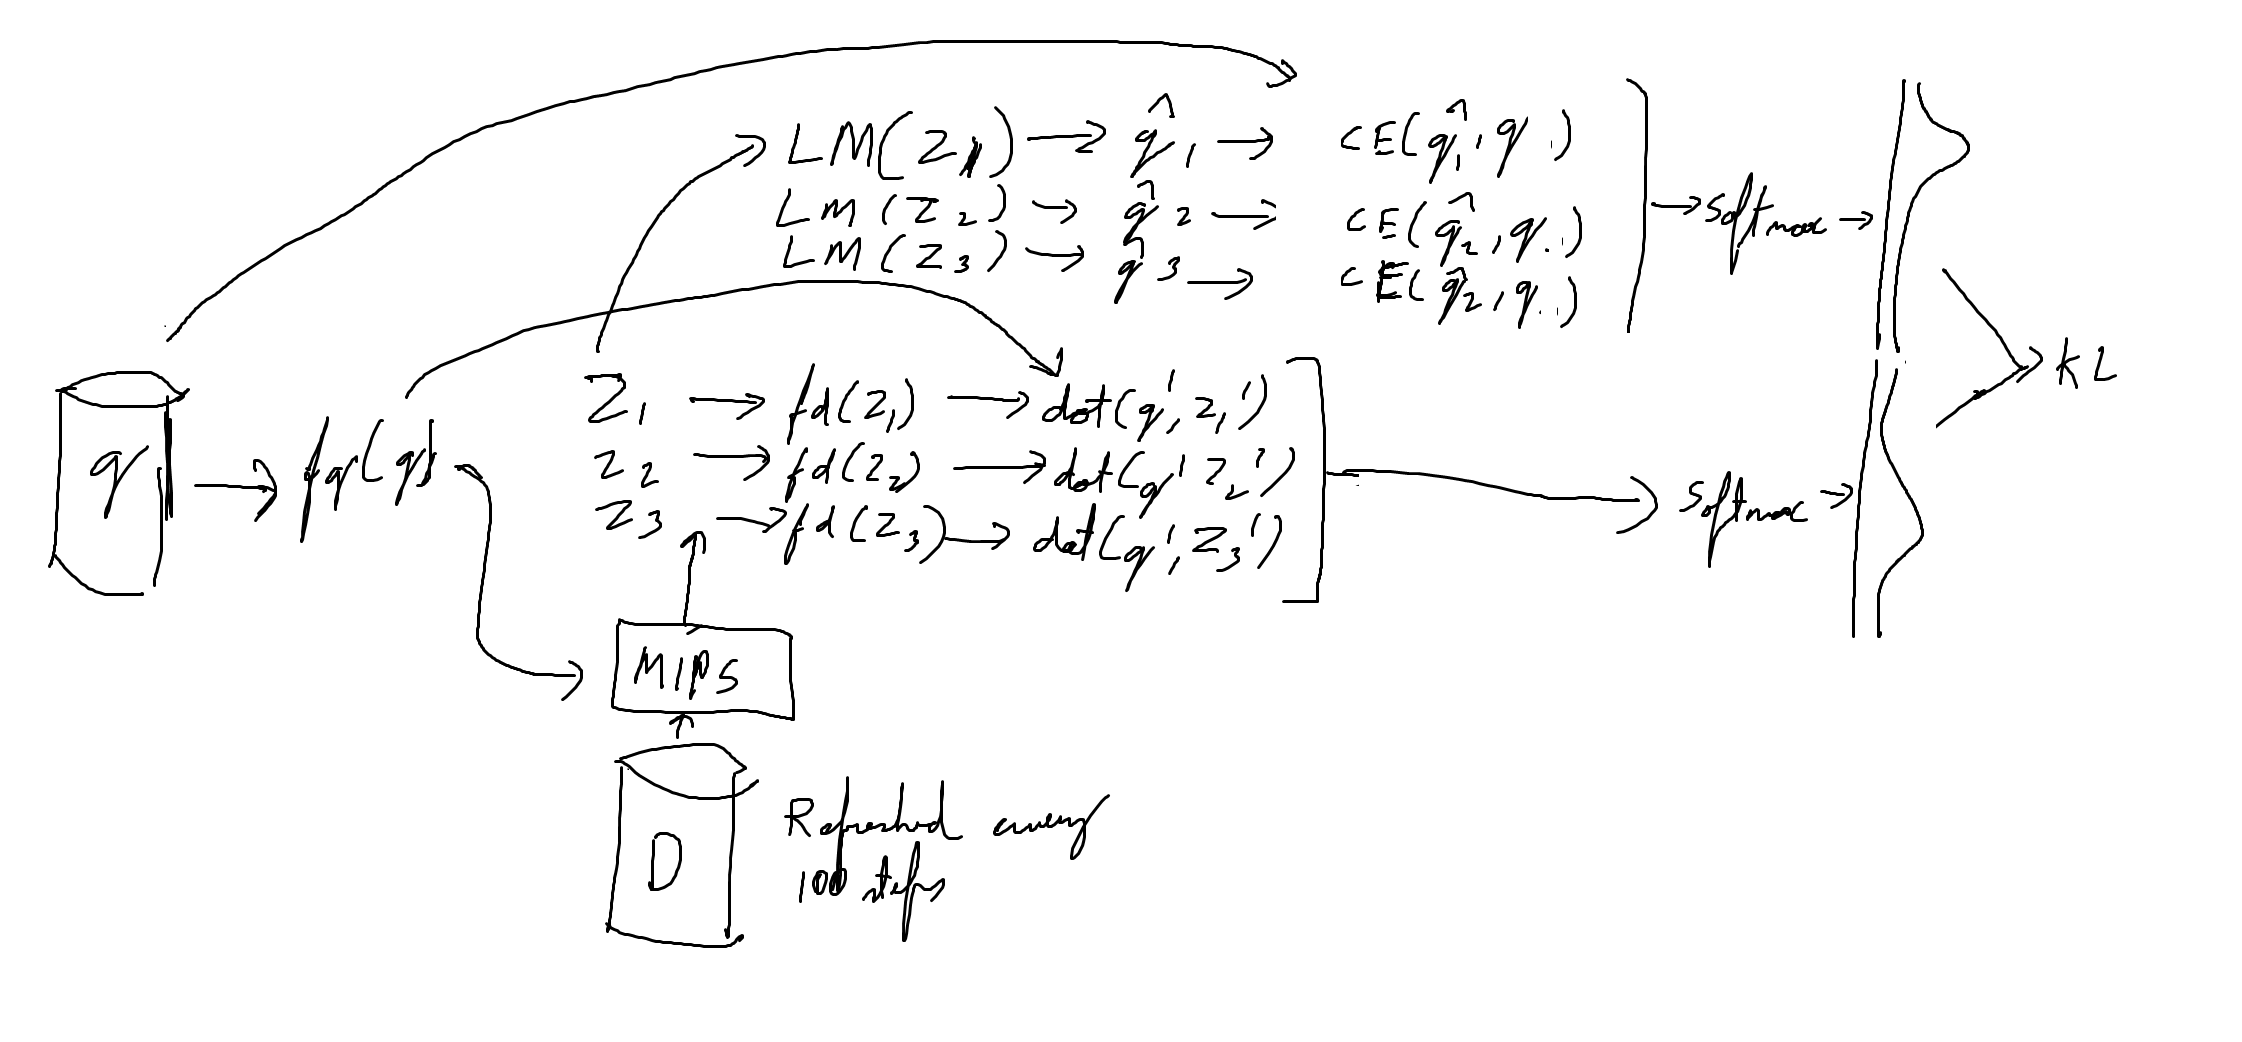 LM(Z1) → q̂1 → CE(q̂1, q.)
LM(Z2) → q̂2 → CE(q̂2, q.)
LM(Z3) → q̂3 → CE(q̂2, q.)
→ softmax →
KL
q → fq(q)
Z1 → fd(Z1) → dot(q', z1')
Z2 → fd(Z2) → dot(q' Z2')
Z3 → fd(Z3) → dot(q', Z3')
softmax →
MIPS
D
Refreshed every
100 steps